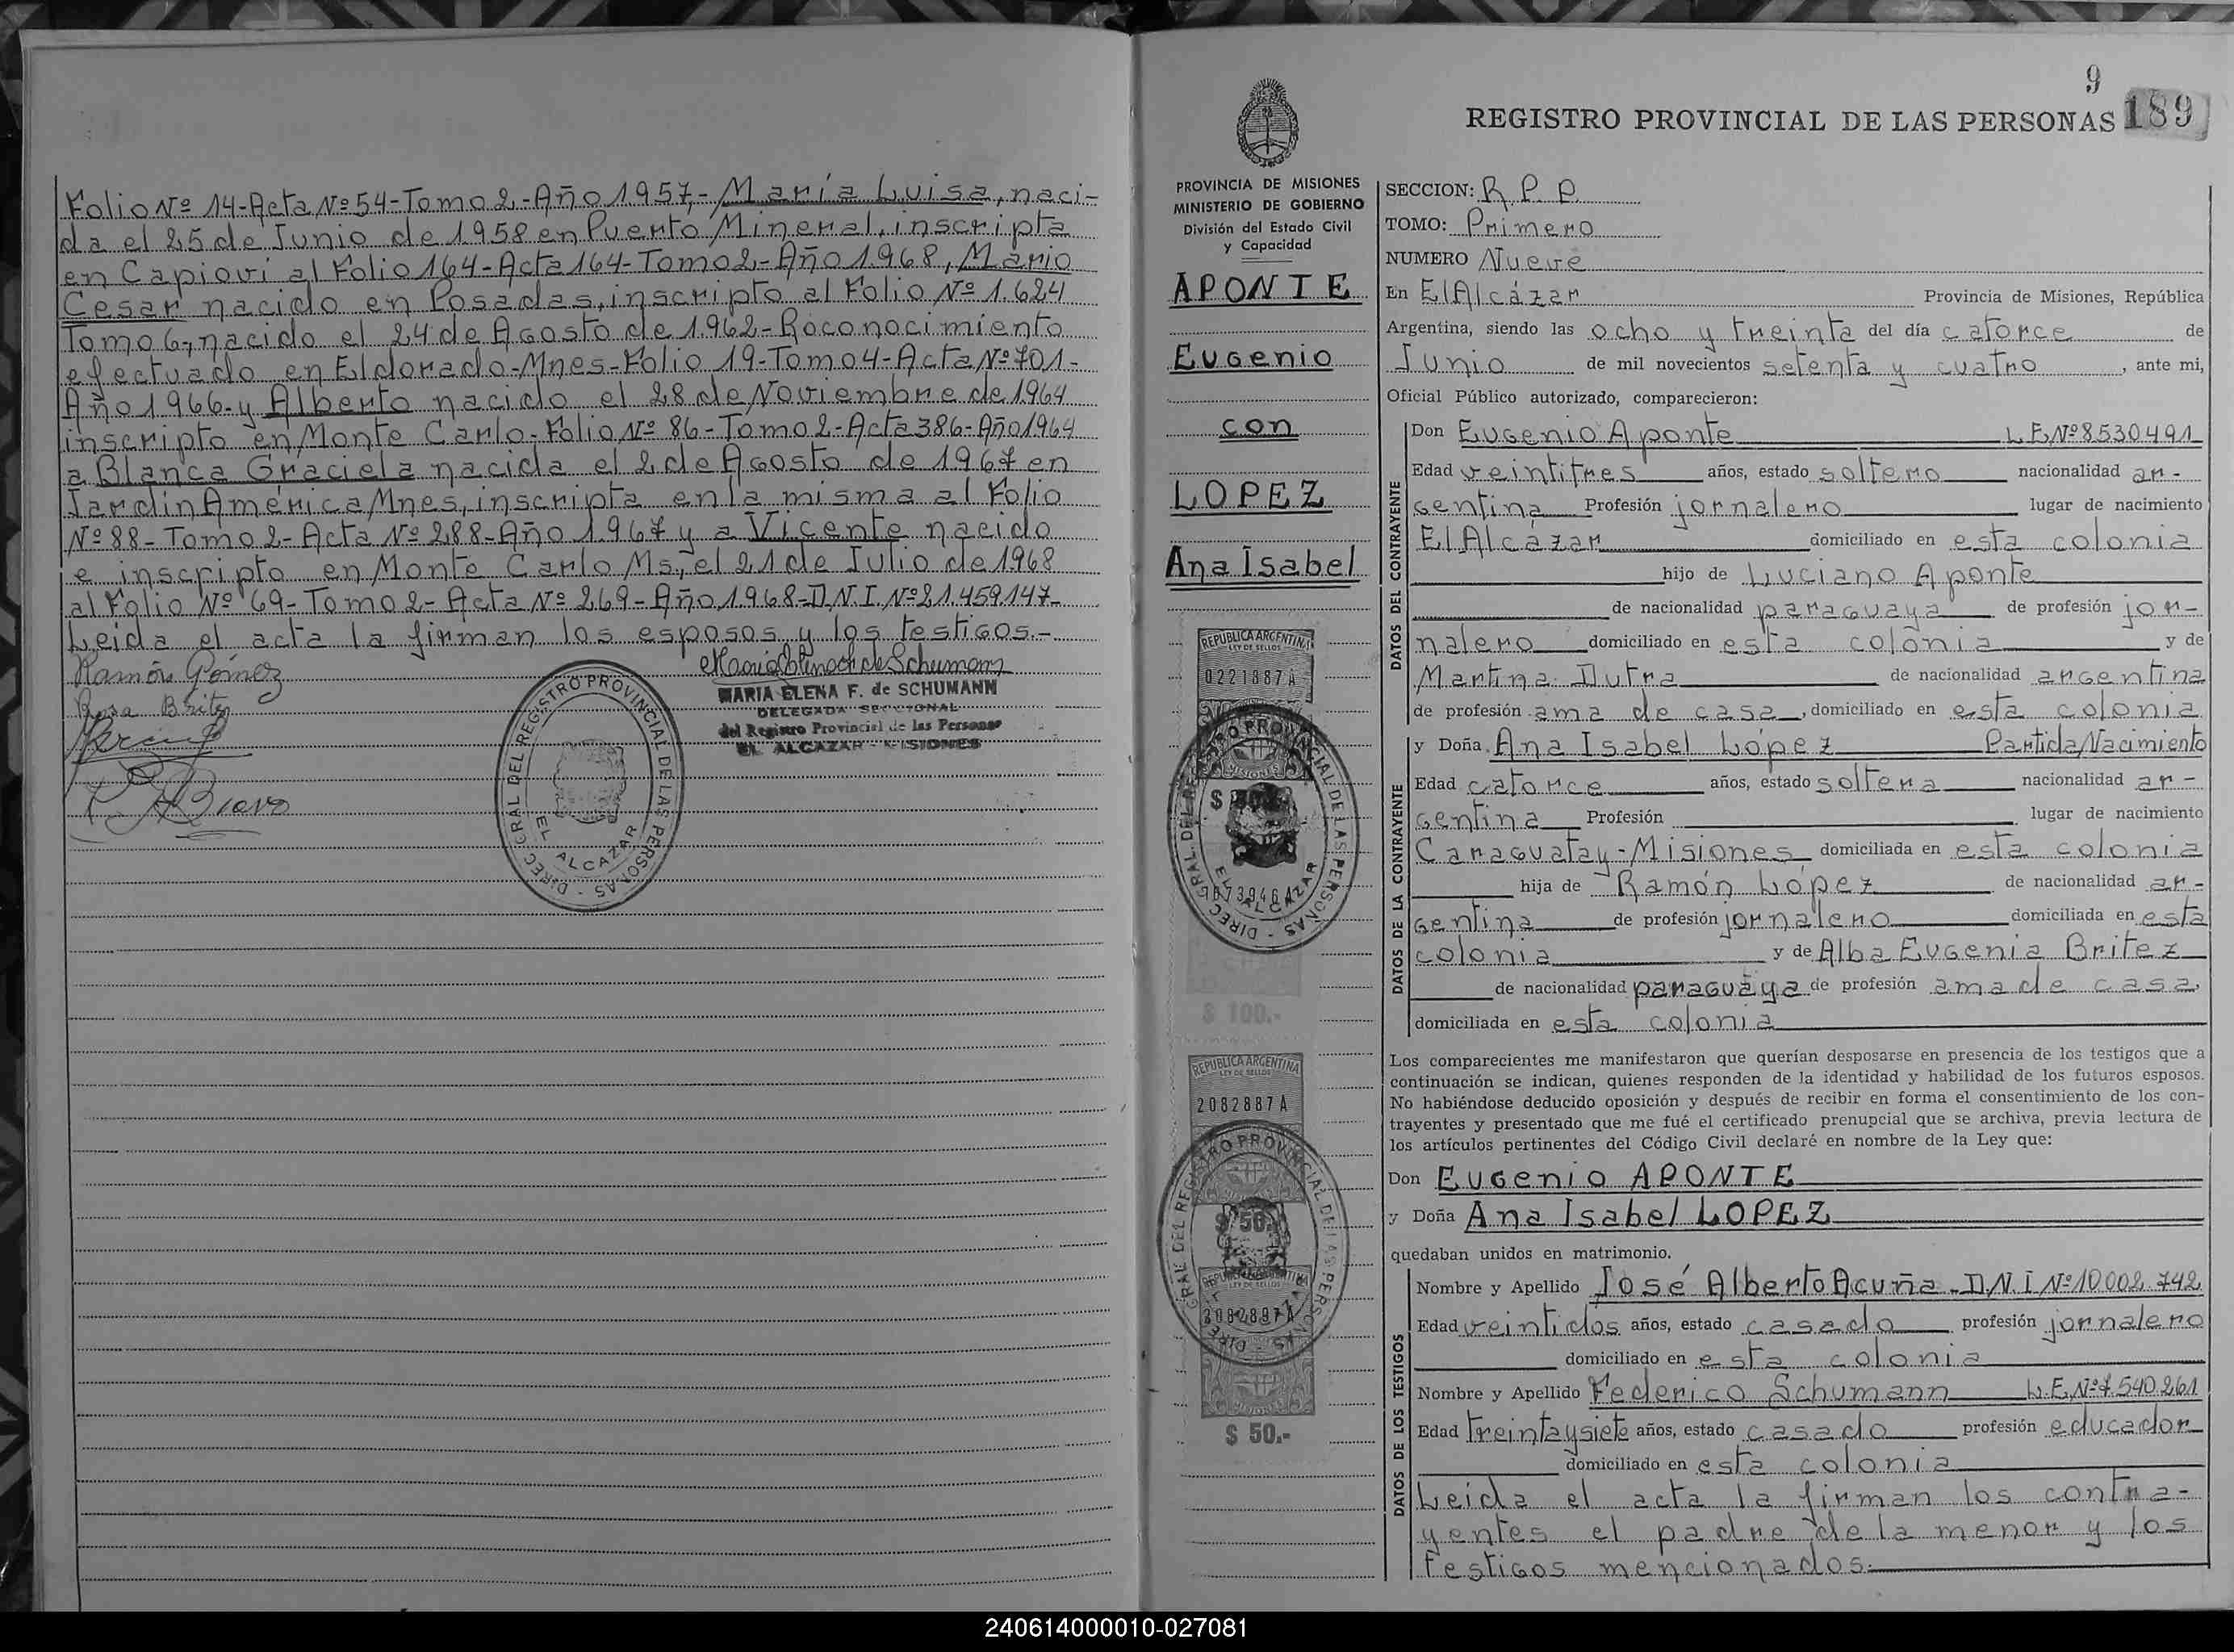 Folio Nº 14-Acta Nº 54-Tomo 2-Año 1957,- María Luisa, naci-
da el 25 de Junio de 1958 en Puerto Mineral, inscripta
en Capioví al Folio 164-Acta 164-Tomo 2-Año 1968, Mario
Cesar nacido en Posadas, inscripto al Folio Nº 1.624
Tomo 6, nacido el 24 de Agosto de 1962-Roconocimiento
efectuado en Eldorado-Mnes-Folio 19-Tomo 4-Acta Nº 701-
Año 1966-y Alberto nacido el 28 de Noviembre de 1964
inscripto en Monte Carlo-Folio Nº 86-Tomo 2-Acta 386-Año 1964
a Blanca Graciela nacida el 2 de Agosto de 1967 en
Jardin América Mnes, inscripta en la misma al Folio
Nº 88-Tomo 2-Acta Nº 288-Año 1967 y a Vicente nacido
e inscripto en Monte Carlo Ms, el 21 de Julio de 1968
al Folio Nº 69-Tomo 2-Acta Nº 269-Año 1968-D.N.I. Nº 21.459.147-
Leida el acta la firman los esposos y los testigos.-
Ramón Gómez
Rosa Britez
MARIA ELENA F. de SCHUMANN
DELEGADA SECCIONAL
del Registro Provincial de las Personas
EL ALCAZAR - MISIONES
DIREC. GRAL. DEL REGISTRO PROVINCIAL DE LAS PERSONAS
EL ALCAZAR
9
REGISTRO PROVINCIAL DE LAS PERSONAS 189
PROVINCIA DE MISIONES
MINISTERIO DE GOBIERNO
División del Estado Civil
y Capacidad
APONTE
Eugenio
con
LOPEZ
Ana Isabel
REPUBLICA ARGENTINA
LEY DE SELLOS
0221887A
DIREC. GRAL. DEL REGISTRO PROVINCIAL DE LAS PERSONAS
EL ALCAZAR
$ 100.-
REPUBLICA ARGENTINA
LEY DE SELLOS
2082887A
DIREC. GRAL. DEL REGISTRO PROVINCIAL DE LAS PERSONAS
$ 50.-
2082897A
MISIONES
$ 50.-
SECCION: R.P.P.
TOMO: Primero
NUMERO Nueve
En El Alcázar Provincia de Misiones, República
Argentina, siendo las ocho y treinta del día catorce de
Junio de mil novecientos setenta y cuatro, ante mi,
Oficial Público autorizado, comparecieron:
DATOS DEL CONTRAYENTE
Don Eugenio Aponte L.E.Nº 8530491
Edad veintitres años, estado soltero nacionalidad ar-
gentina Profesión jornalero lugar de nacimiento
El Alcázar domiciliado en esta colonia
hijo de Luciano Aponte
de nacionalidad paraguaya de profesión jor-
nalero domiciliado en esta colonia y de
Martina Dutra de nacionalidad argentina
de profesión ama de casa, domiciliado en esta colonia
DATOS DE LA CONTRAYENTE
y Doña Ana Isabel López Partida Nacimiento
Edad catorce años, estado soltera nacionalidad ar-
gentina Profesión lugar de nacimiento
Caraguatay-Misiones domiciliada en esta colonia
hija de Ramón López de nacionalidad ar-
gentina de profesión jornalero domiciliada en esta
colonia y de Alba Eugenia Britez
de nacionalidad paraguaya de profesión ama de casa,
domiciliada en esta colonia
Los comparecientes me manifestaron que querían desposarse en presencia de los testigos que a
continuación se indican, quienes responden de la identidad y habilidad de los futuros esposos.
No habiéndose deducido oposición y después de recibir en forma el consentimiento de los con-
trayentes y presentado que me fué el certificado prenupcial que se archiva, previa lectura de
los artículos pertinentes del Código Civil declaré en nombre de la Ley que:
Don Eugenio APONTE
y Doña Ana Isabel LOPEZ
quedaban unidos en matrimonio.
DATOS DE LOS TESTIGOS
Nombre y Apellido José Alberto Acuña-D.N.I Nº 10 002.742
Edad veintidos años, estado casado profesión jornalero
domiciliado en esta colonia
Nombre y Apellido Federico Schumann L.E.Nº 7.540.261
Edad treinta y siete años, estado casado profesión educador
domiciliado en esta colonia
Leida el acta la firman los contra-
yentes el padre de la menor y los
testigos mencionados.
240614000010-027081